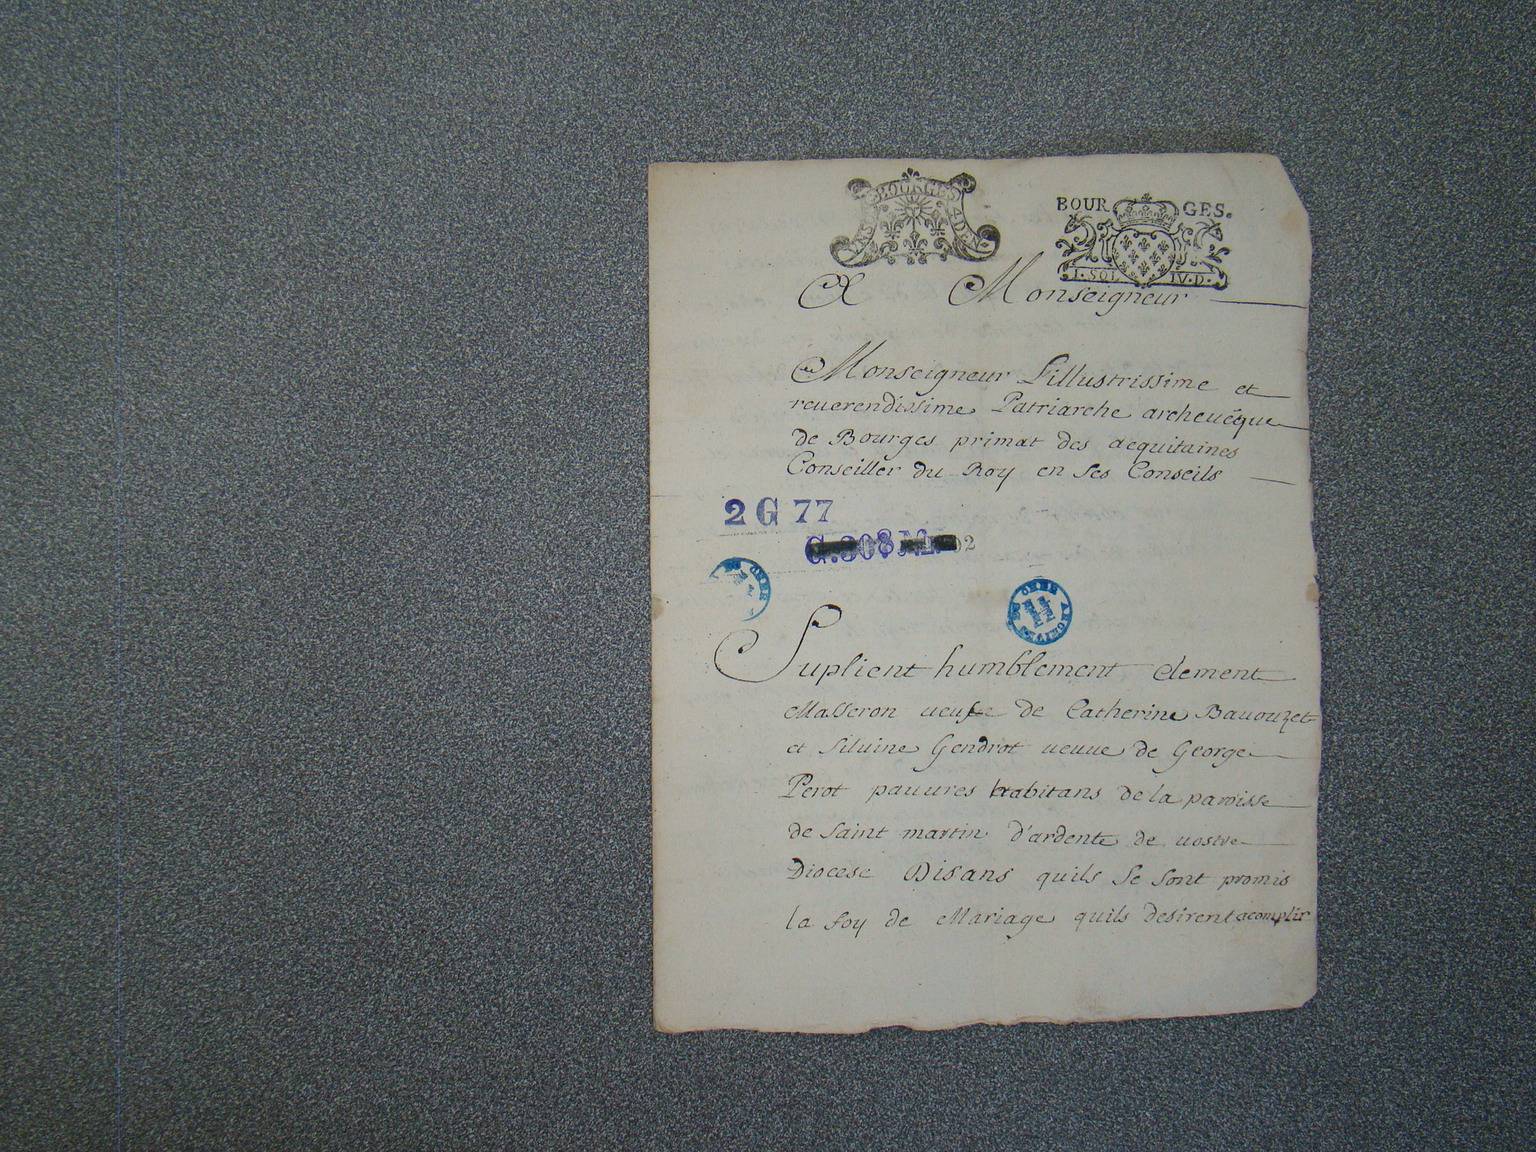 BOURGES 4 DEN.
BOURGES.
I. SOL IV. D.
A Monseigneur
Monseigneur Lillustrissime et
reuerendissime Patriarche archeuéque
de Bourges primat des aequitaines
Conseiller du Roy en ses Conseils
2 G 77
Suplient humblement clement
Masseron ueufe de Catherine Bauouzet
et siluine Gendrot ueuue de George
Perot pauures habitans de la paroisse
de saint martin d'ardente de uostre
Diocese Disans quils se sont promis
la foy de Mariage quils desirent acomplir